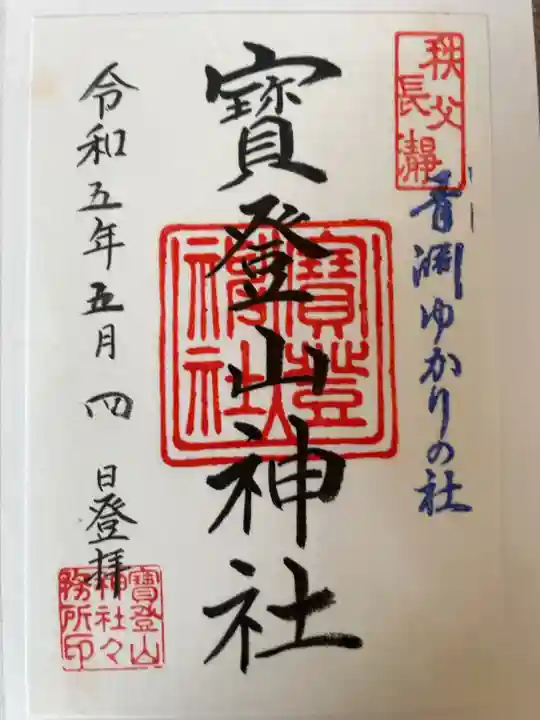 秩父
長瀞
青淵ゆかりの社
寳登山神社
寳登
山神社
令和五年五月四日登拝
寳登山
神社々
務所印